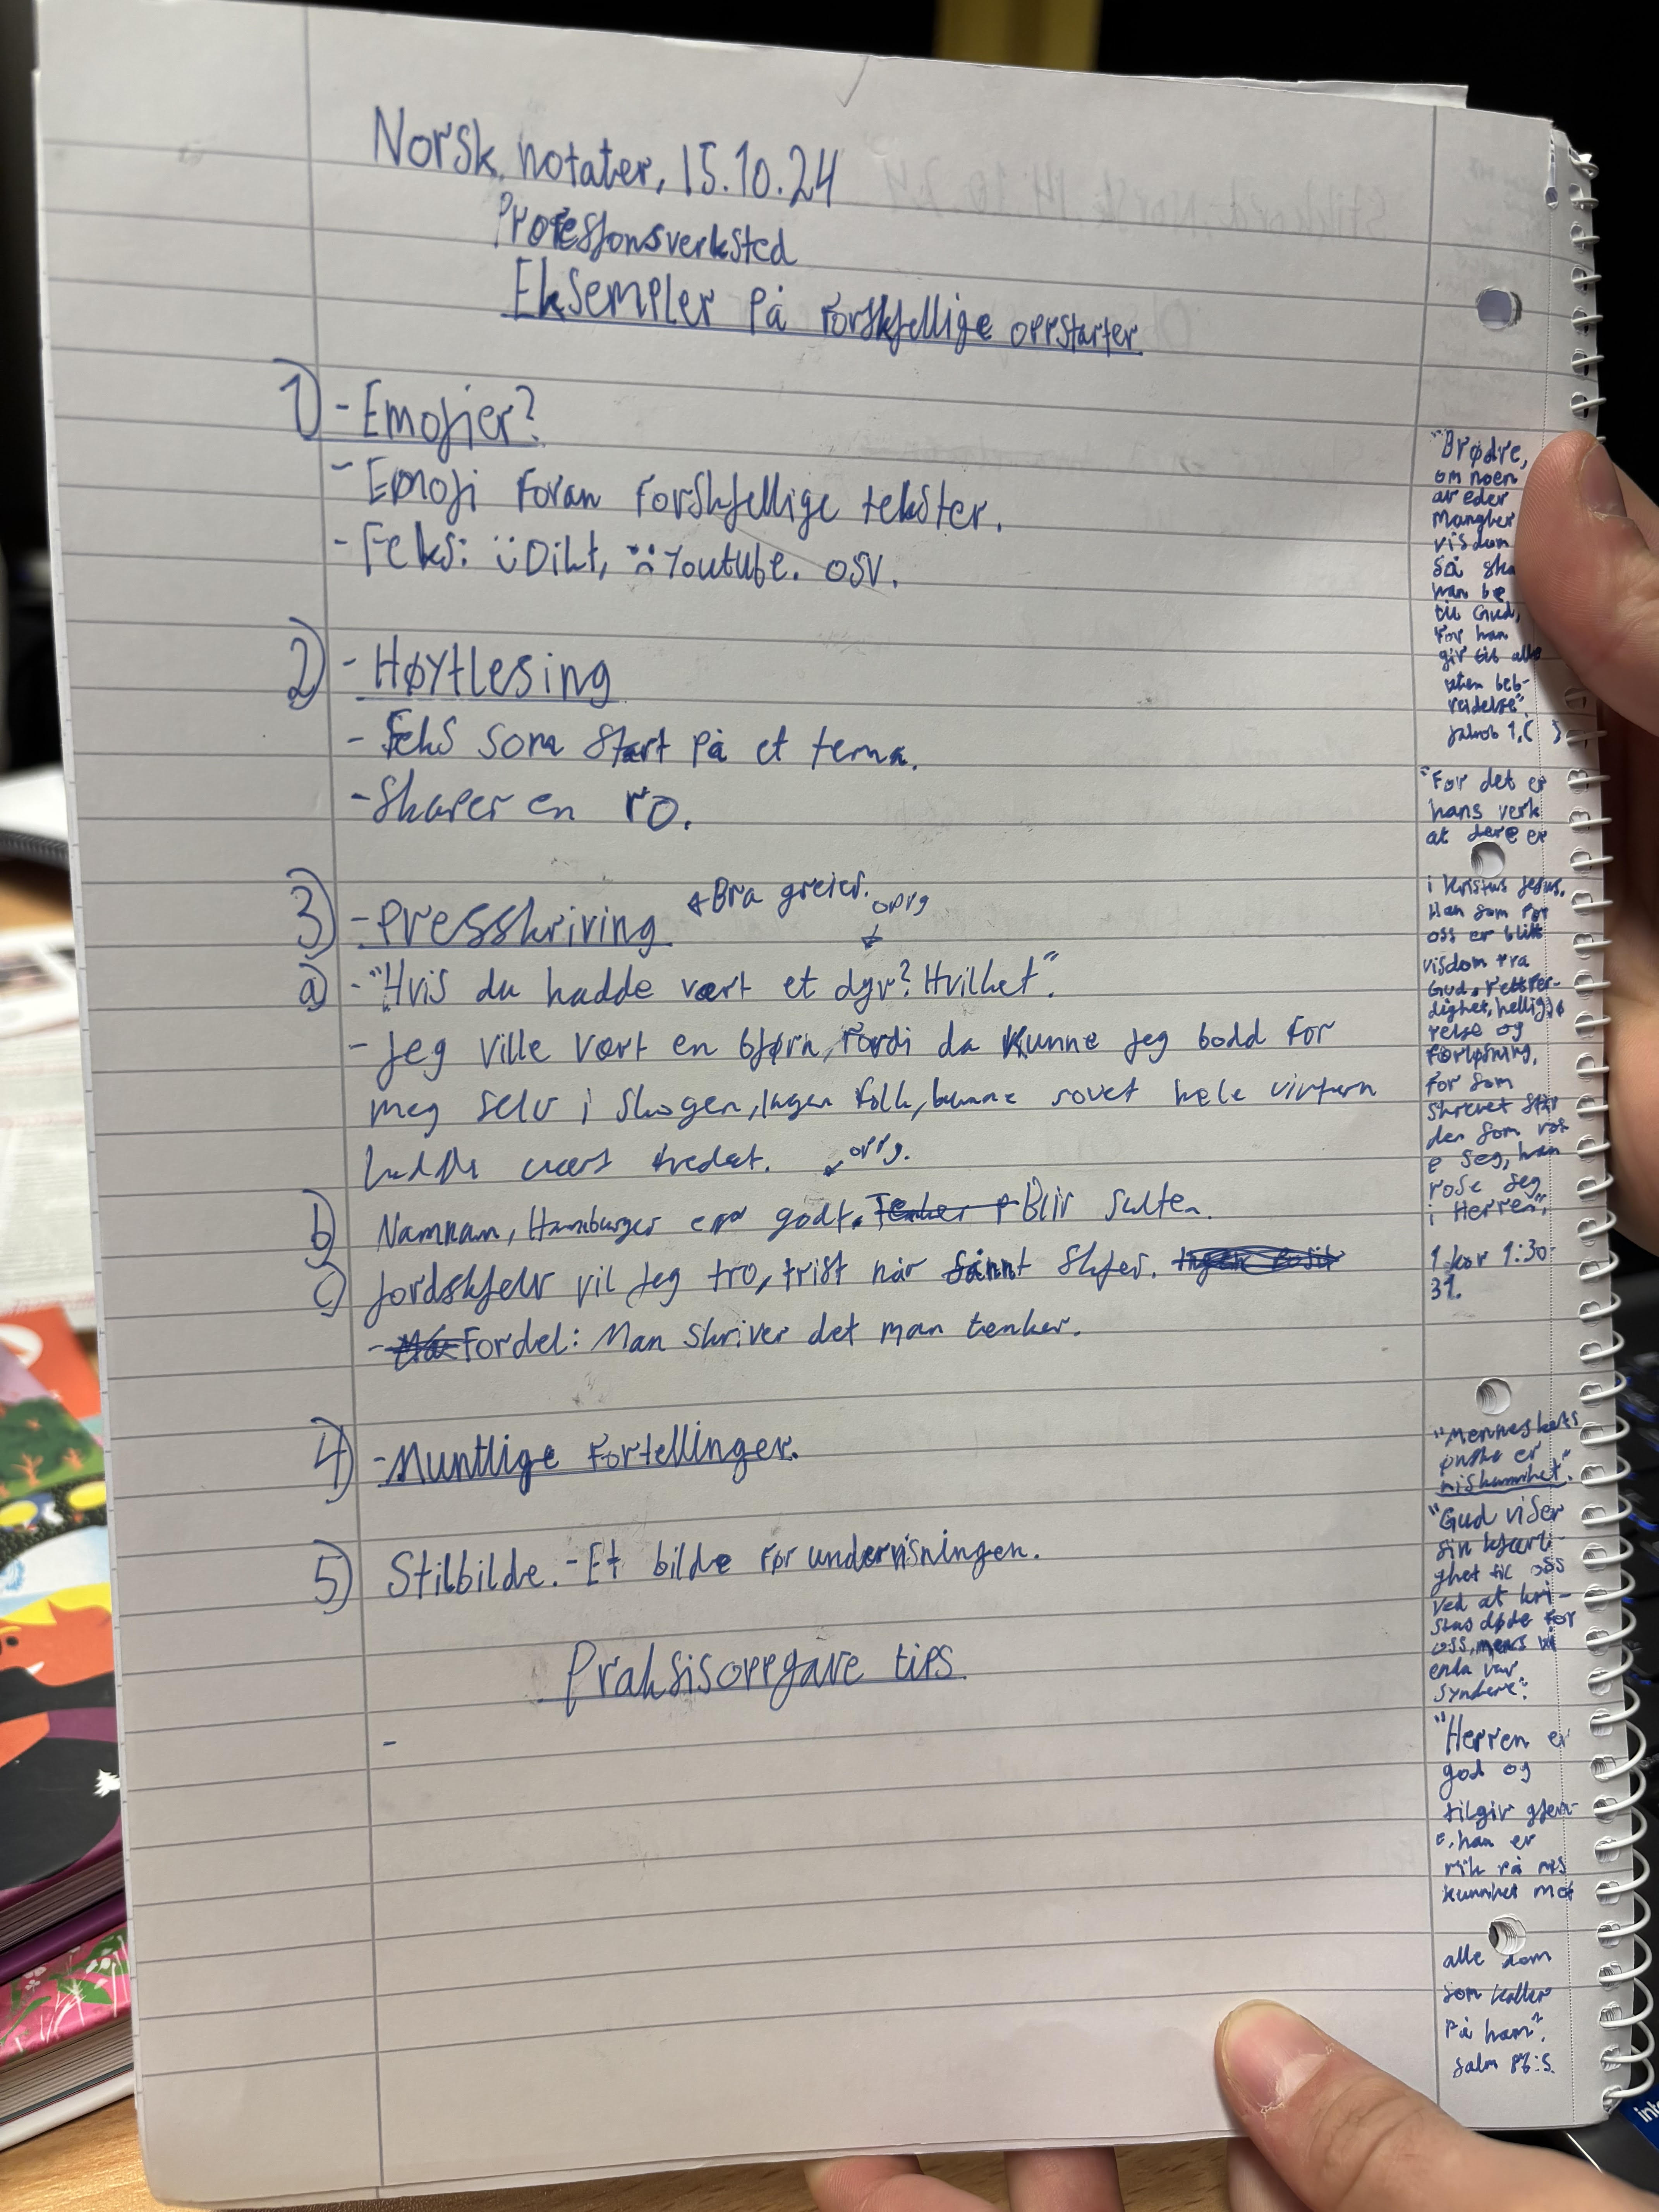 Norsk notater, 15.10.24
Profesjonsverksted
Eksempler på forskjellige oppstarter
1) - Emojier?
- Emoji foran forskjellige tekster.
- Feks: Dikt, Youtube. osv.
2) - Høytlesing
- Feks som start på et tema.
- Skaper en ro.
3) - Presskriving ← Bra greier. oppg
a) - "Hvis du hadde vært et dyr? Hvilket".
- Jeg ville vært en bjørn, fordi da kunne jeg bodd for
meg selv i skogen, ingen folk, kunne sovet hele
hadde vært fredet. oppg.
b) Namnam, Hamburger er godt. Tenker Blir sulten.
c) Jordskjelv vil jeg tro, trist når sånnt skjer.
- Fordel: Man skriver det man tenker.
4) - Muntlige fortellinger.
5) Stilbilde. - Et bilde før undervisningen.
Praksisoppgave tips.
-
"Brødre,
om noen
av eder
mangler
visdom
så ska
han be
til Gud,
for han
gir til alle
uten beb-
reidelse".
Jakob 1,
"For det er
hans verk
at dere er
i Kristus Jesus,
Han som for
oss er blitt
visdom fra
Gud, rettfer-
dighet, helliggjø
relse og
forløsning,
for som
skrevet står
den som ros
e seg, han
rose seg
i Herren",
1 kor 1:30-
31.
"Menneskets
ønske er
miskunnhet".
"Gud viser
sin kjærli-
ghet til oss
ved at kri-
stus døde for
oss, mens vi
enda var
syndere".
"Herren er
god og
tilgir gjern-
e, han er
rik på mis
kunnhet mot
alle dem
som kaller
på ham".
Salm 86:5.
inte